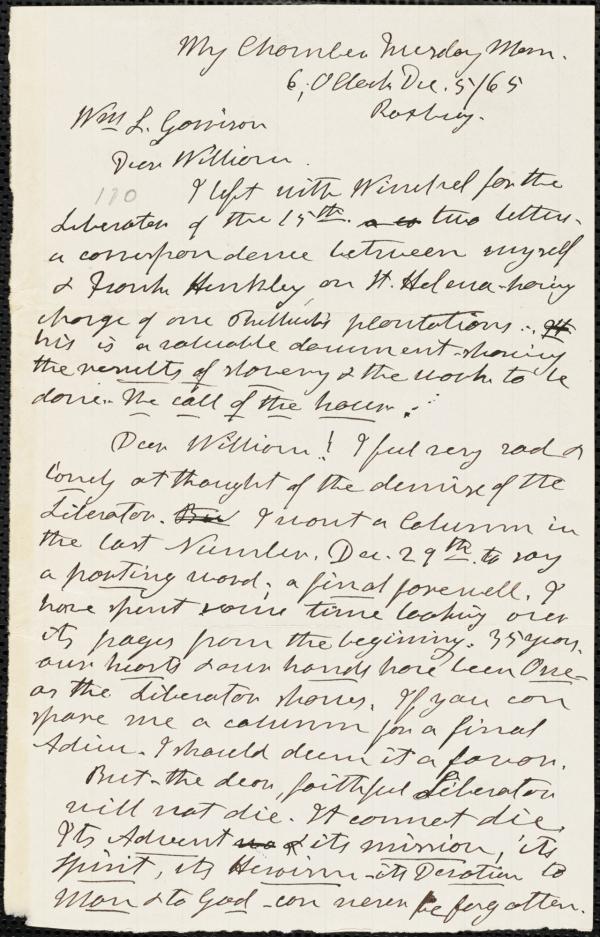 My Chamber Tuesday Morn.
6, O'Clock Dec. 5/65
Roxbury.
Wm L. Garrison
Dear William.
110
I left with Winchel for the
Liberator of the 15th. two letters -
a correspondence between myself
& Frank Hinkley, on St. Helena - having
charge of one Philbrick's plantations.
his is a valuable document - showing
the results of slavery & the work to be
done - the call of the hour.
Dear William! I feel very sad &
lonely at thought of the demise of the
Liberator. I want a Column in
the last Number. Dec. 29th. to say
a parting word; a final farewell. I
have spent some time looking over
its pages from the beginning. 35 years.
our hearts & our hands have been One -
as the Liberator shows. If you can
spare me a column for a final
Adieu - I should deem it a favor.
But - the dear, faithful Liberator
will not die. It cannot die.
Its Advent & its mission, its
Spirit, its Heroism - its Devotion to
Man & to God - can never be forgotten.